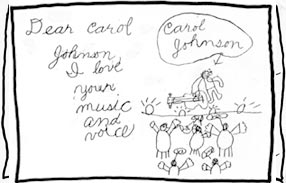 Dear Carol
Johnson
I love
your
music
and
voice
Carol
Johnson